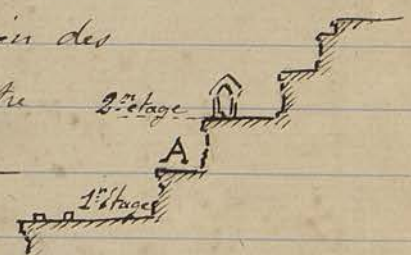 in des
tre
2.me étage
A
1er étage